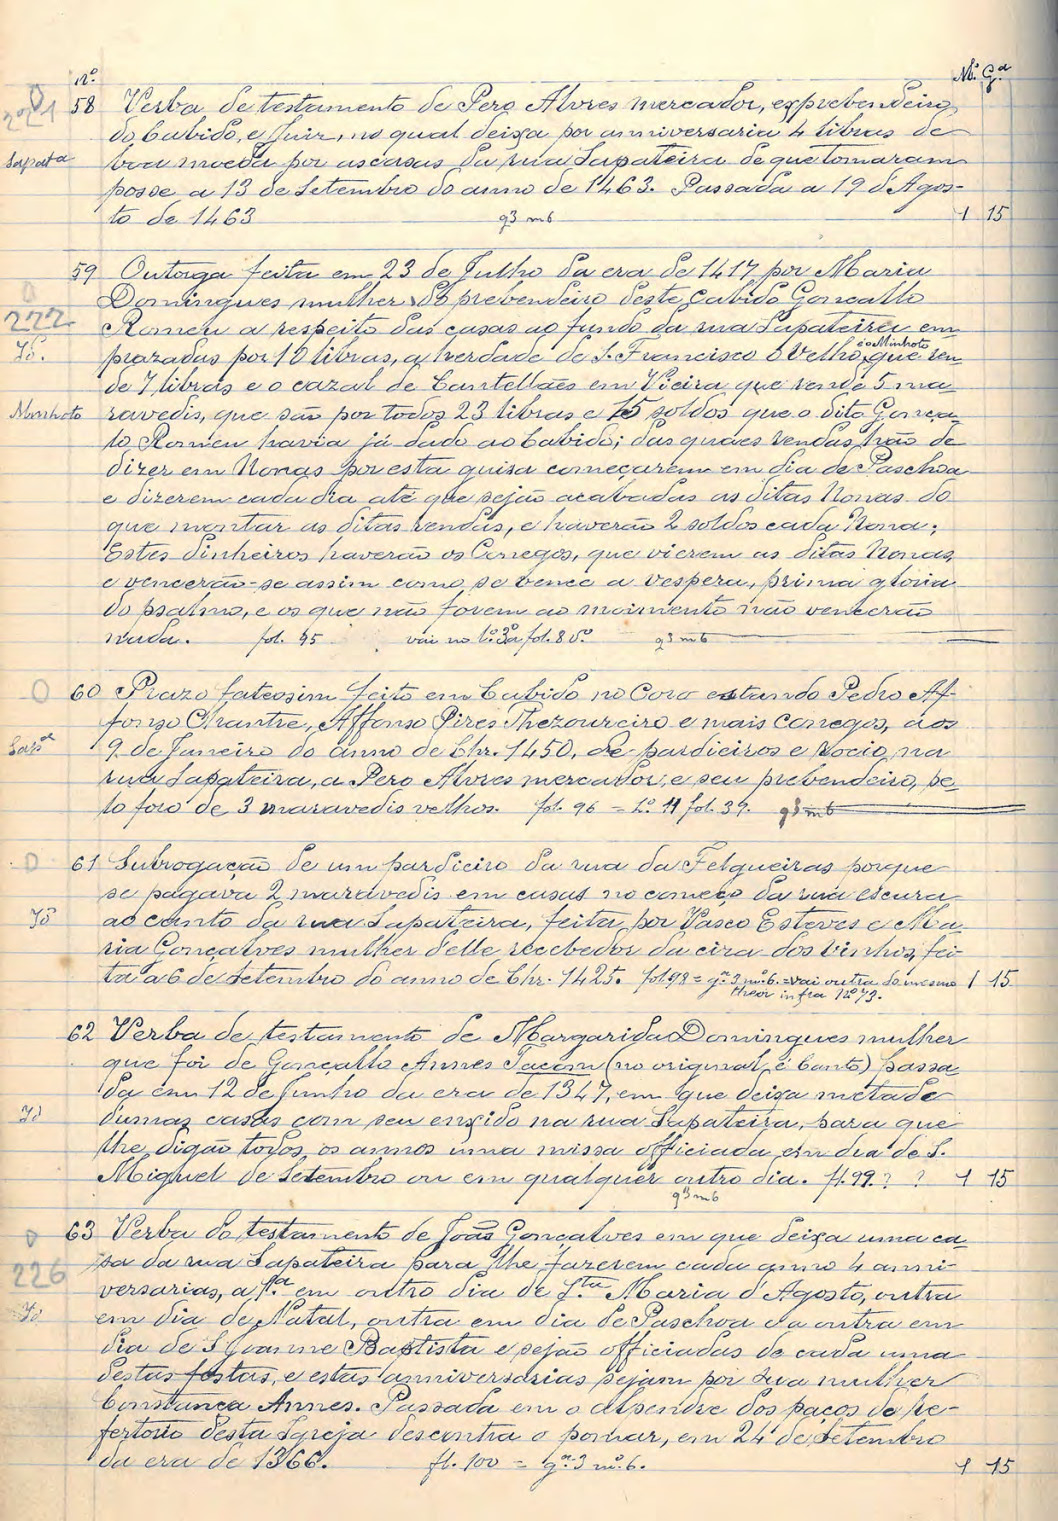 Nº Mº Gª
58 Verba de testamento de Pero Alvres mercador, e prebendeiro
do Cabido, e Juiz, no qual deixa por anniversaria 4 libras de
Sapatª boa moeda por as casas da rua Sapateira de que tomaram
posse a 13 de Setembro do anno de 1463. Passada a 19 d'Agos-
to de 1463 g3 m6 1 15
59 Outorga feita em 23 de Julho da era de 1417 por Maria
Domingues mulher do prebendeiro deste Cabido Goncallo
222 Romeu a respeito das casas ao fundo da rua Sapateira em-
Id. prazadas por 10 libras, a herdade de S. Francisco o Velho, é o Minhoto que ren-
de 7 libras e o cazal de Cantellães em Vieira que rende 5 ma-
Minhoto ravedis, que são por todos 23 libras e 15 soldos que o dito Gonça-
lo Romeu havia já dado ao Cabido; das quaes rendas hão de
dizer em Nonas por esta guisa começarem em dia de Paschoa
e dizerem cada dia até que sejão acabadas as ditas Nonas do
que montar as ditas rendas, e haverão 2 soldos cada Nona;
Estes dinheiros haverão os Conegos, que vierem as ditas Nonas,
e vencerão-se assim como se vence a vespera, prima gloria
do psalmo, e os que não forem ao moimento não vencerão
nada. fol. 95 vai no lº 3º a fol. 8 vº g3 m6
60 Prazo fateosim feito em Cabido no Coro estando Pedro Af-
fonso Chantre, Affonso Pires Thezoureiro e mais conegos, aos
Sapª 9 de Janeiro do anno de Chr. 1450, de pardieiros e rocio, na
rua Sapateira, a Pero Alvres mercador, e seu prebendeiro, pe-
lo foro de 3 maravedis velhos. fol. 96 = Lº 11 fol. 39. g3 m6
61 Subrogação de um pardieiro da rua da Felgueiras porque
se pagava 2 maravedis em casas no começo da rua escura
Id ao canto da rua Sapateira, feita por Vasco Esteves e Ma-
ria Gonçalves mulher delle recebedor da cira dos vinhos, fei-
ta a 6 de Setembro do anno de Chr. 1425. fol 98 = gª 3 mº 6. = vai outra do mesmo 1 15
theor infra nº 73.
62 Verba de testamento de Margarida Domingues mulher
que foi de Goncallo Annes Tacom (no original é Canto) passa-
da em 12 de Junho da era de 1347, em que deixa metade
Id dumas casas com seu enxido na rua Sapateira, para que
lhe digão todos os annos uma missa officiada em dia de S.
Miguel de Setembro ou em qualquer outro dia. fl. 99. ? ? 1 15
g3 m6
63 Verba do testamento de João Gonçalves em que deixa uma ca-
226 sa da rua Sapateira para lhe fazerem cada anno 4 anni-
versarias, a 1ª em outro dia de Sta Maria d'Agosto, outra
Id em dia de Natal, outra em dia de Paschoa e a outra em
dia de S Joanne Baptista e sejão officiadas de cada uma
destas festas, e estas anniversarias sejam por sua mulher
Constança Annes. Passada em o alpendre dos paços do re-
fertorio desta Igreja descontra o pomar, em 24 de Setembro
da era de 1366. fl. 100 = gª 3 mº 6. 1 15